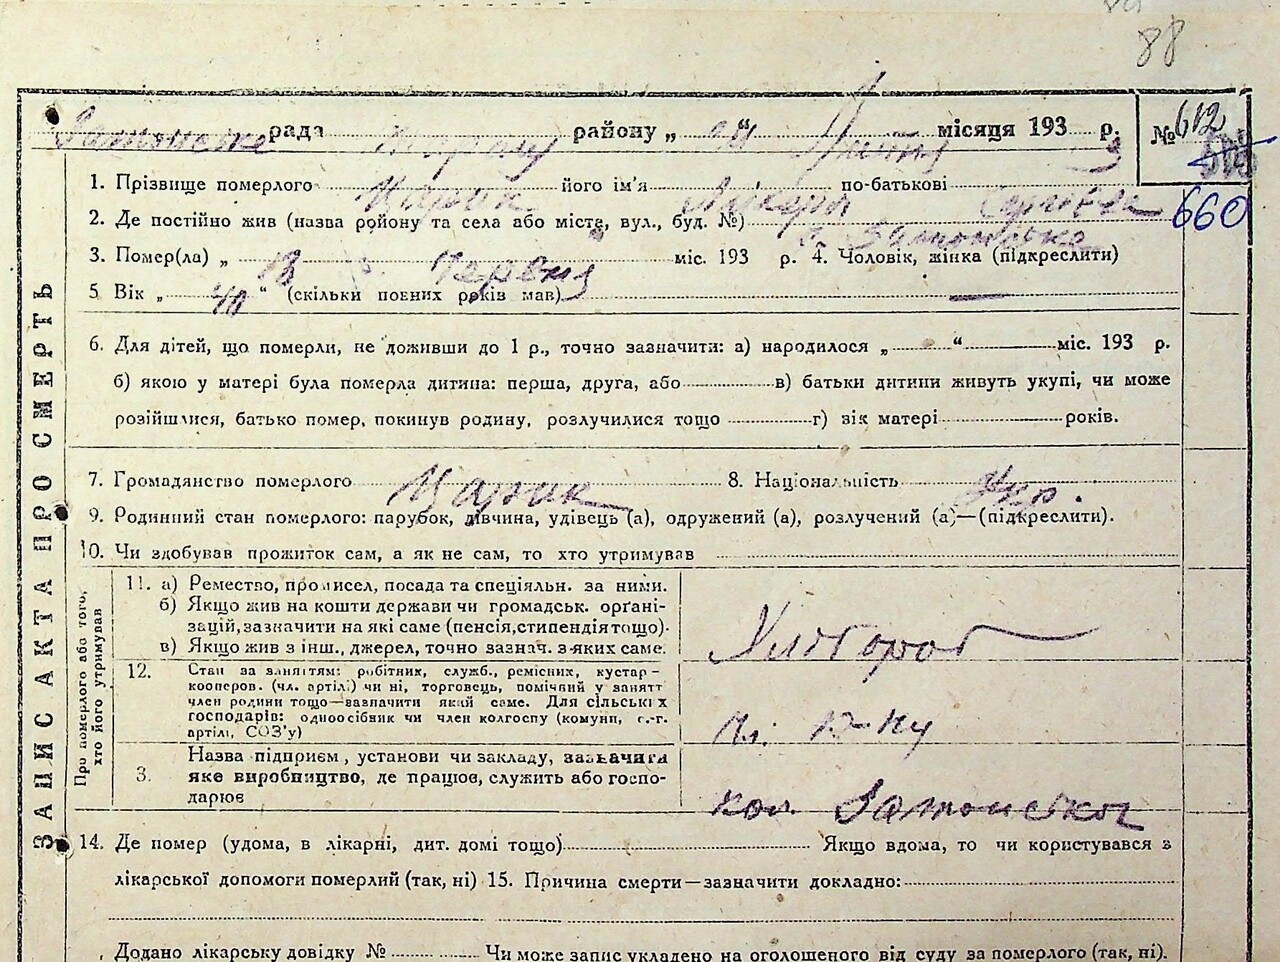 88
рада району „ “ місяця 193 3 р. № 612
660
1. Прізвище померлого його ім'я по-батькові
2. Де постійно жив (назва району та села або місте, вул., буд. №)
3. Помер(ла) „ 13 “ Червня міс. 193 р. 4. Чоловік, жінка (підкреслити)
5 Вік „ 40 “ (скільки повних років мав) —
6. Для дітей, що померли, не доживши до 1 р., точно зазначити: а) народилося „ “ міс. 193 р.
б) якою у матері була померла дитина: перша, друга, або в) батьки дитини живуть укупі, чи може
розійшлися, батько помер, покинув родину, розлучилися тощо г) вік матері років.
7. Громадянство померлого 8. Національність Укр.
9. Родинний стан померлого: парубок, дівчина, удівець (а), одружений (а), розлучений (а)—(підкреслити).
10. Чи здобував прожиток сам, а як не сам, то хто утримував
При померлого або того, хто його утримував
11. а) Ремество, промисел, посада та спеціяльн. за ними.
б) Якщо жив на кошти держави чи громадськ. орґані-
зацій, зазначити на які саме (пенсія, стипендія тощо).
в) Якщо жив з інш., джерел, точно зазнач. з-яких саме.
Хлібороб
12. Стан за заняттям: робітник, служб., ремісник, кустар-
кооперов. (чл. артілі) чи ні, торговець, помічний у занятт
член родини тощо—вазначити який саме. Для сільських
господарів: одноосібник чи член колгоспу (комуни, с.-г.
артілі, СОЗ'у)
3. Назва підприєм, установи чи закладу, зазначити
яке виробництво, де працює, служить або госпо-
дарює
14. Де помер (удома, в лікарні, дит. домі тощо) Якщо вдома, то чи користувався з
лікарської допомоги померлий (так, ні) 15. Причина смерти—зазначити докладно:
Додано лікарську довідку № Чи може запис укладено на оголошеного від суду за померлого (так, ні).
ЗАПИС АКТА ПРО СМЕРТЬ